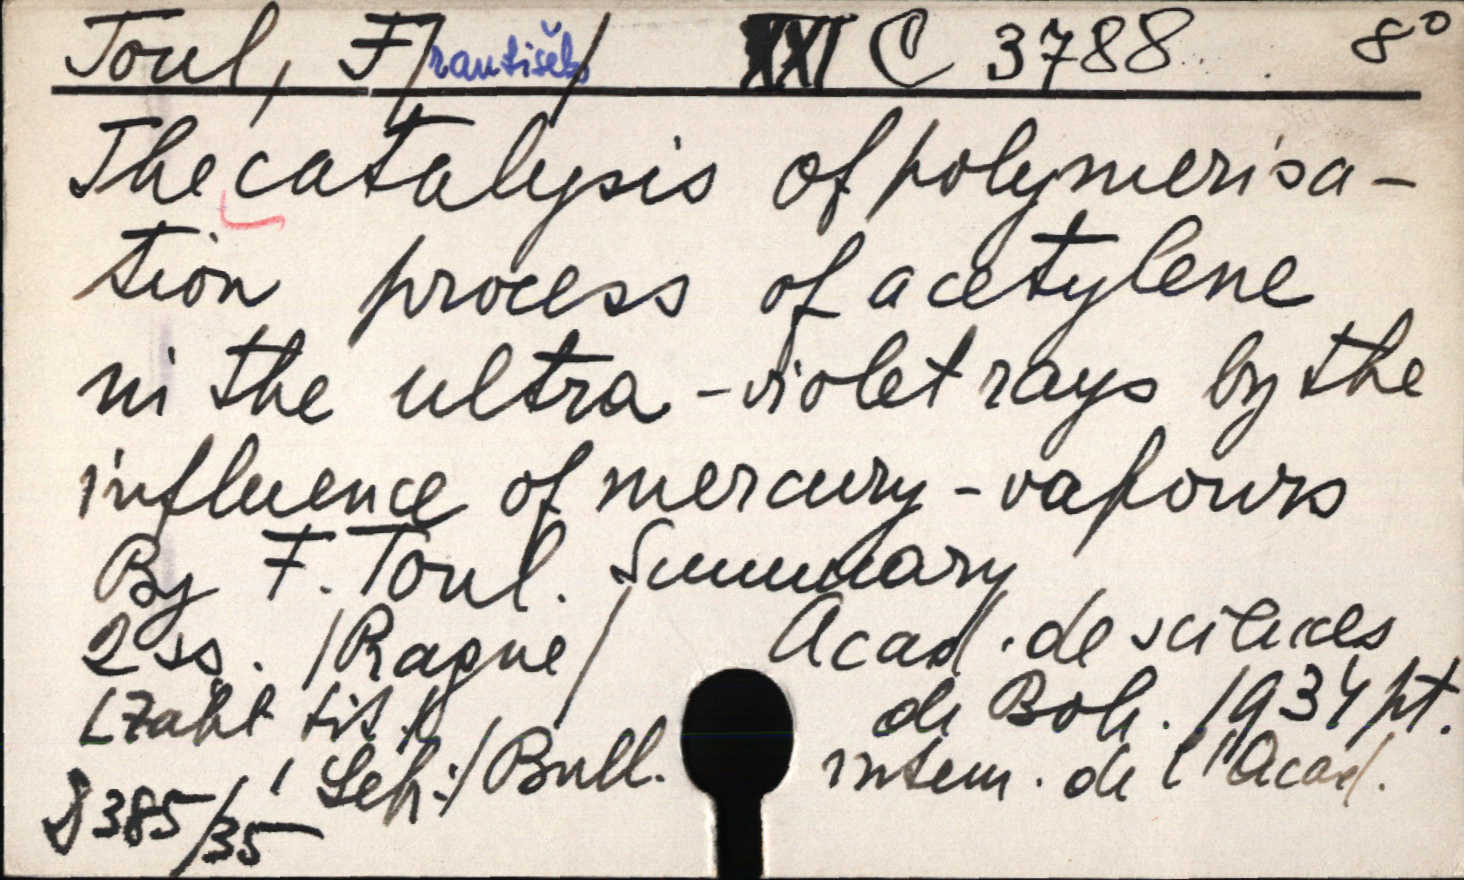 Toul, F/rantišek/ XXI C 3788 8°
The catalysis of polymerisa-
tion process of acetylene
in the ultra-violet rays by the
influence of mercury-vapours
By F. Toul. Summary
2 ss. /Rague/ Acad. de sciences
de Boh. 1934 pt.
tit.
Sep: / Bull. intern. de l'Acad.
385/35